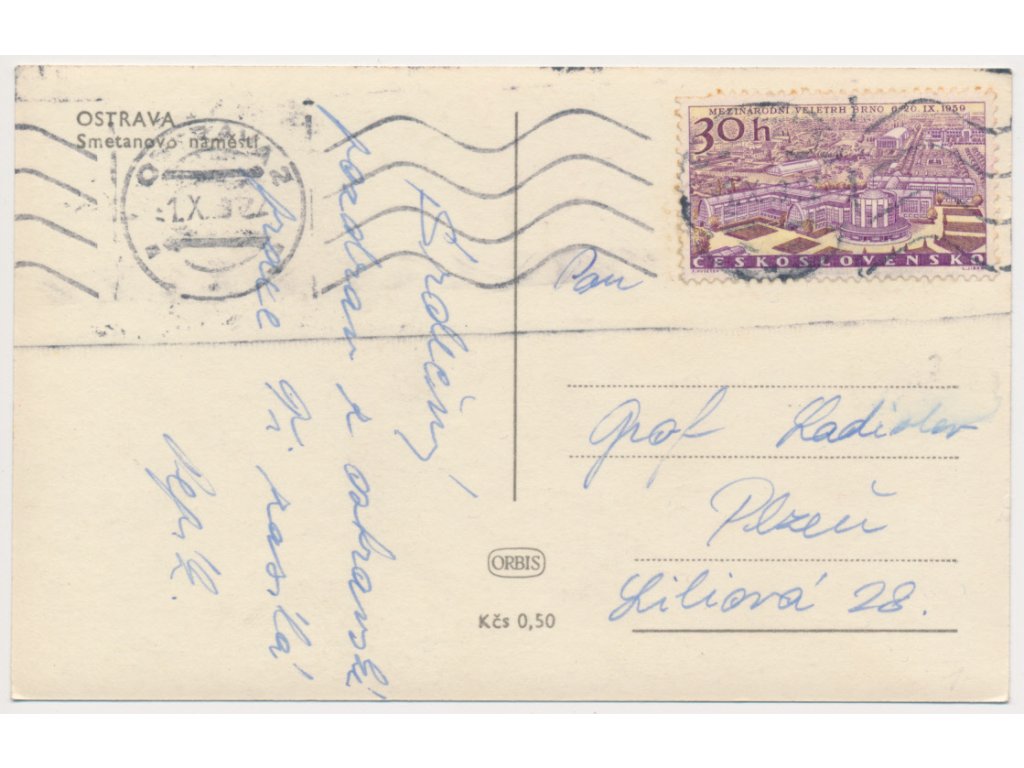 OSTRAVA
Smetanovo náměstí
MEZINÁRODNÍ VELETRH BRNO 6-20.IX.1959
30h
ČESKOSLOVENSKO
Srdečný
pozdrav z ostravské
práce Ti zasílá
Pan
Graf Ladislav
Plzeň
Liliová 28.
ORBIS
Kčs 0,50